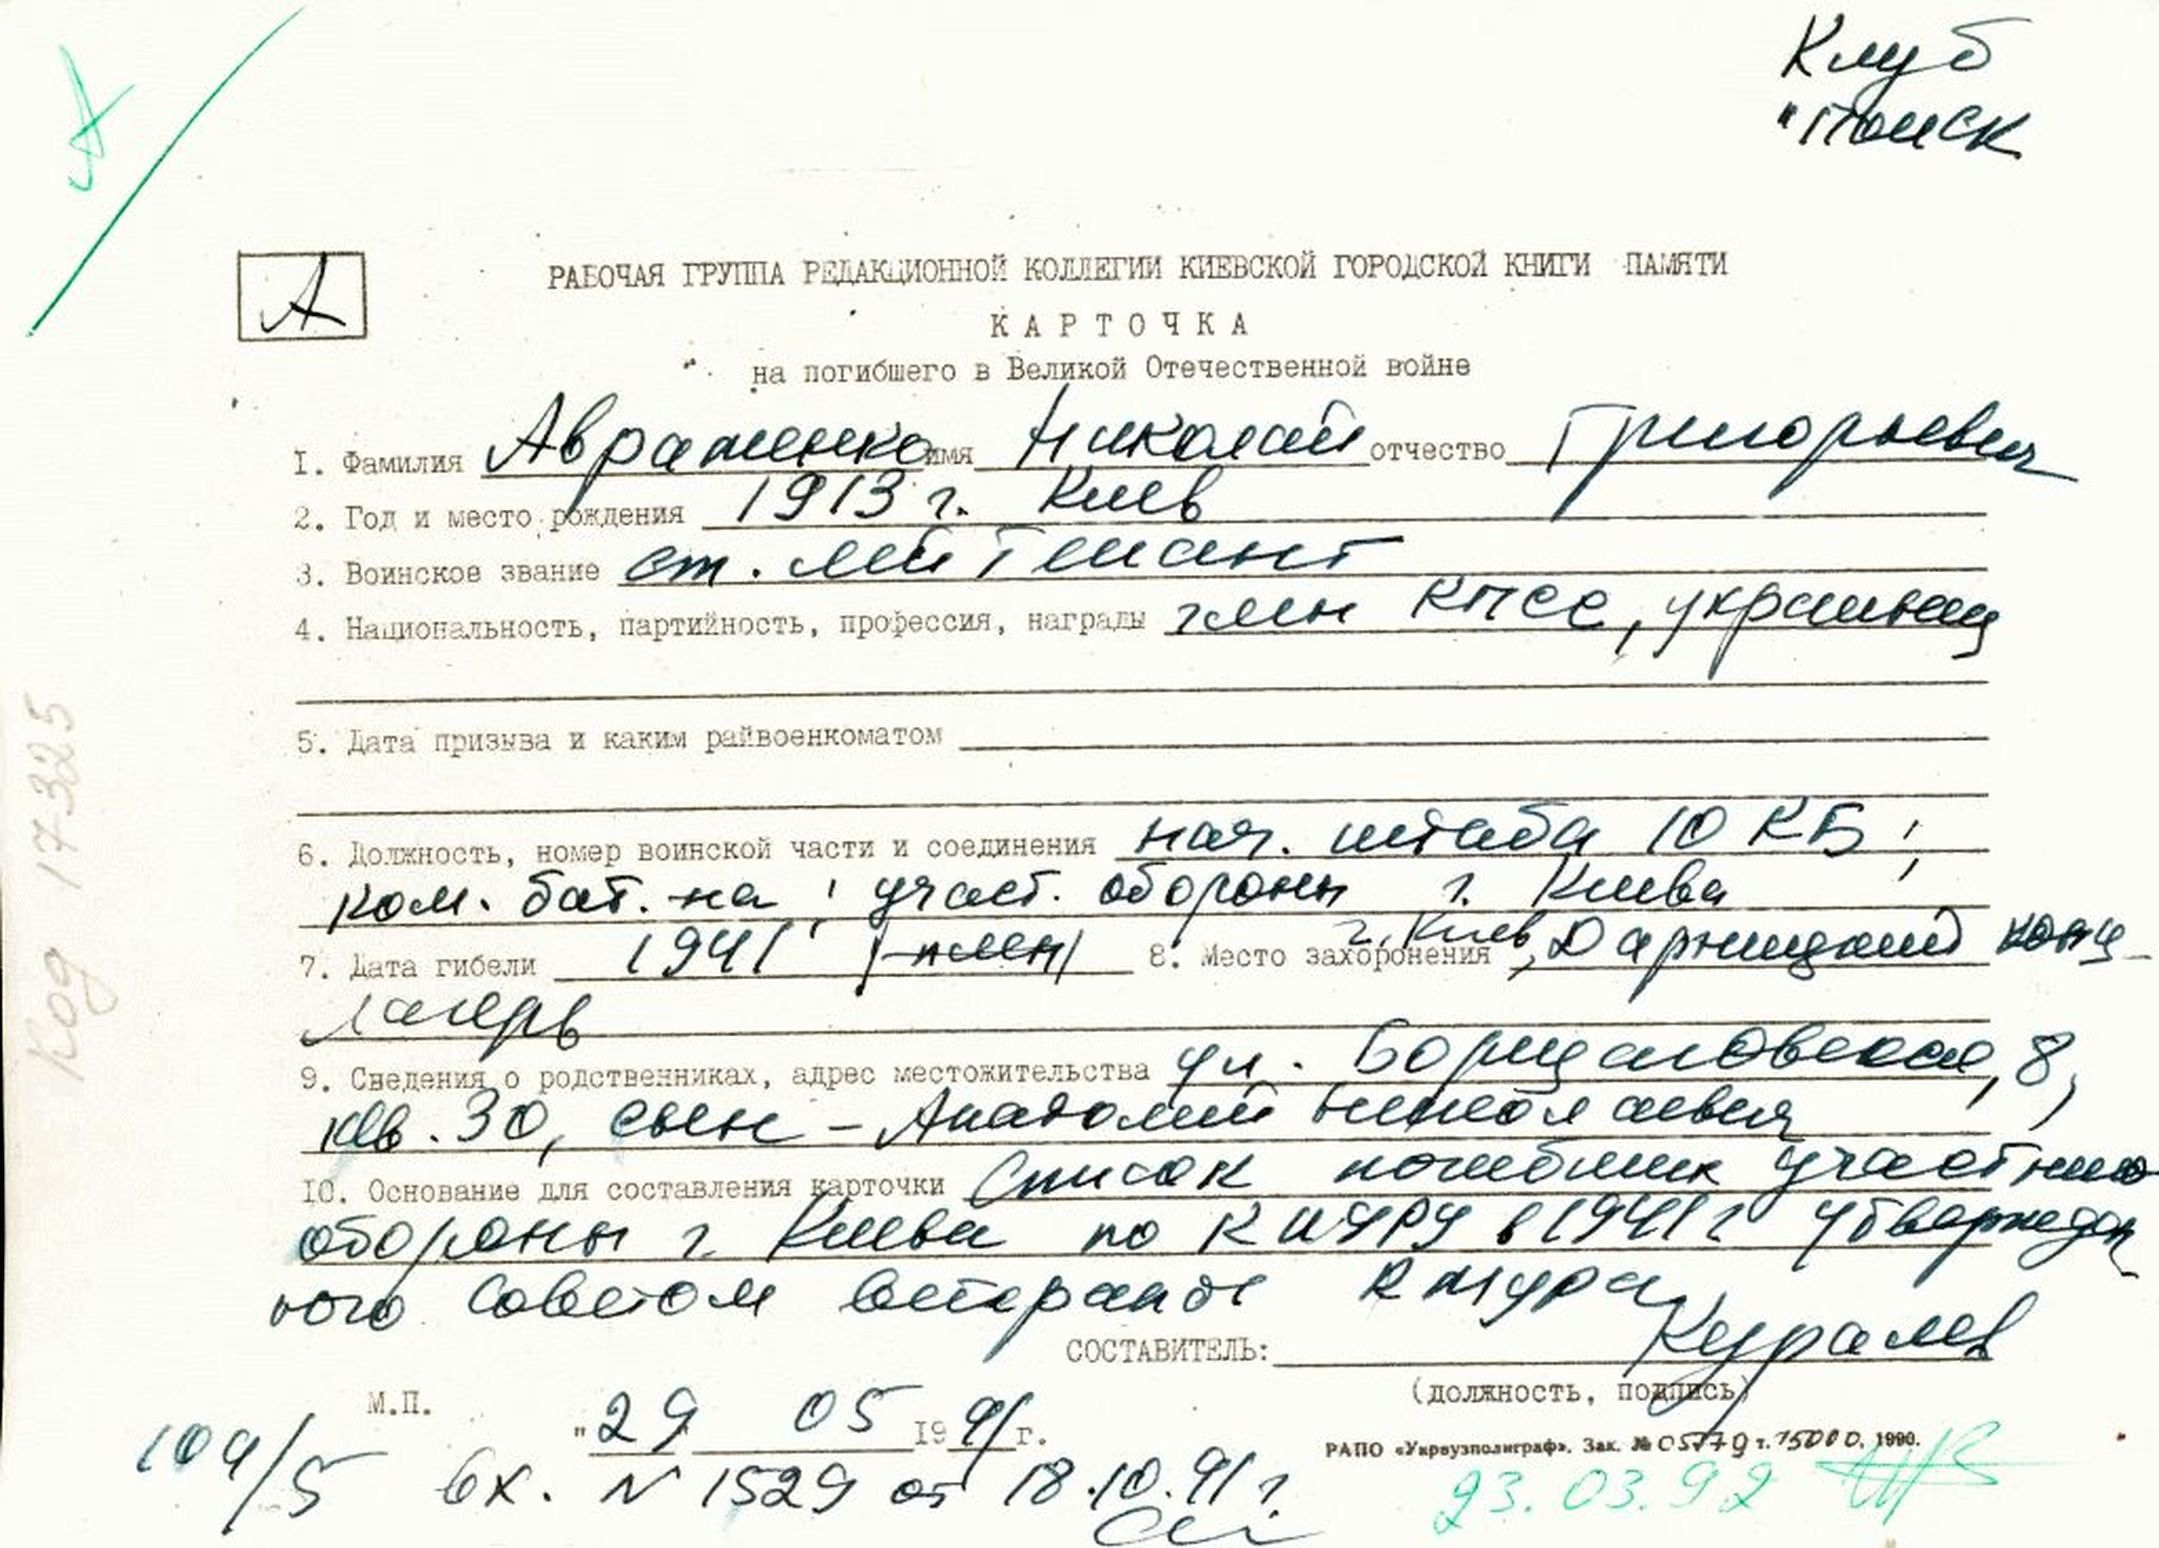 Клуб
"Поиск
А
А
РАБОЧАЯ ГРУППА РЕДАКЦИОННОЙ КОЛЛЕГИИ КИЕВСКОЙ ГОРОДСКОЙ КНИГИ ПАМЯТИ
КАРТОЧКА
на погибшего в Великой Отечественной войне
1. Фамилия Авраменко имя Николай отчество Григорьевич
2. Год и место рождения 1913 г. Киев
3. Воинское звание ст. лейтенант
4. Национальность, партийность, профессия, награды член КПСС, украинец
5. Дата призыва и каким райвоенкоматом
6. Должность, номер воинской части и соединения нач. штаба 10 КБ;
ком. бат. на участ. обороны г. Киева
7. Дата гибели 1941 (плен) 8. Место захоронения г. Киев, Дарницкий конц-
лагерь
9. Сведения о родственниках, адрес местожительства ул. Борщаговская, 8,
кв. 30, сын - Анатолий Николаевич
10. Основание для составления карточки Список погибших участников
обороны г. Киева по КИУРУ в 1941 г утвержден-
ного Советом ветеранов Киура
СОСТАВИТЕЛЬ:
(должность, подпись)
М.П.
"29" 05 1991г.
РАПО «Укрвузполиграф». Зак. № 05779 т. 15000. 1990.
104/5 Вх. N 1529 от 18.10.91 г.
23.03.92
Код 17325